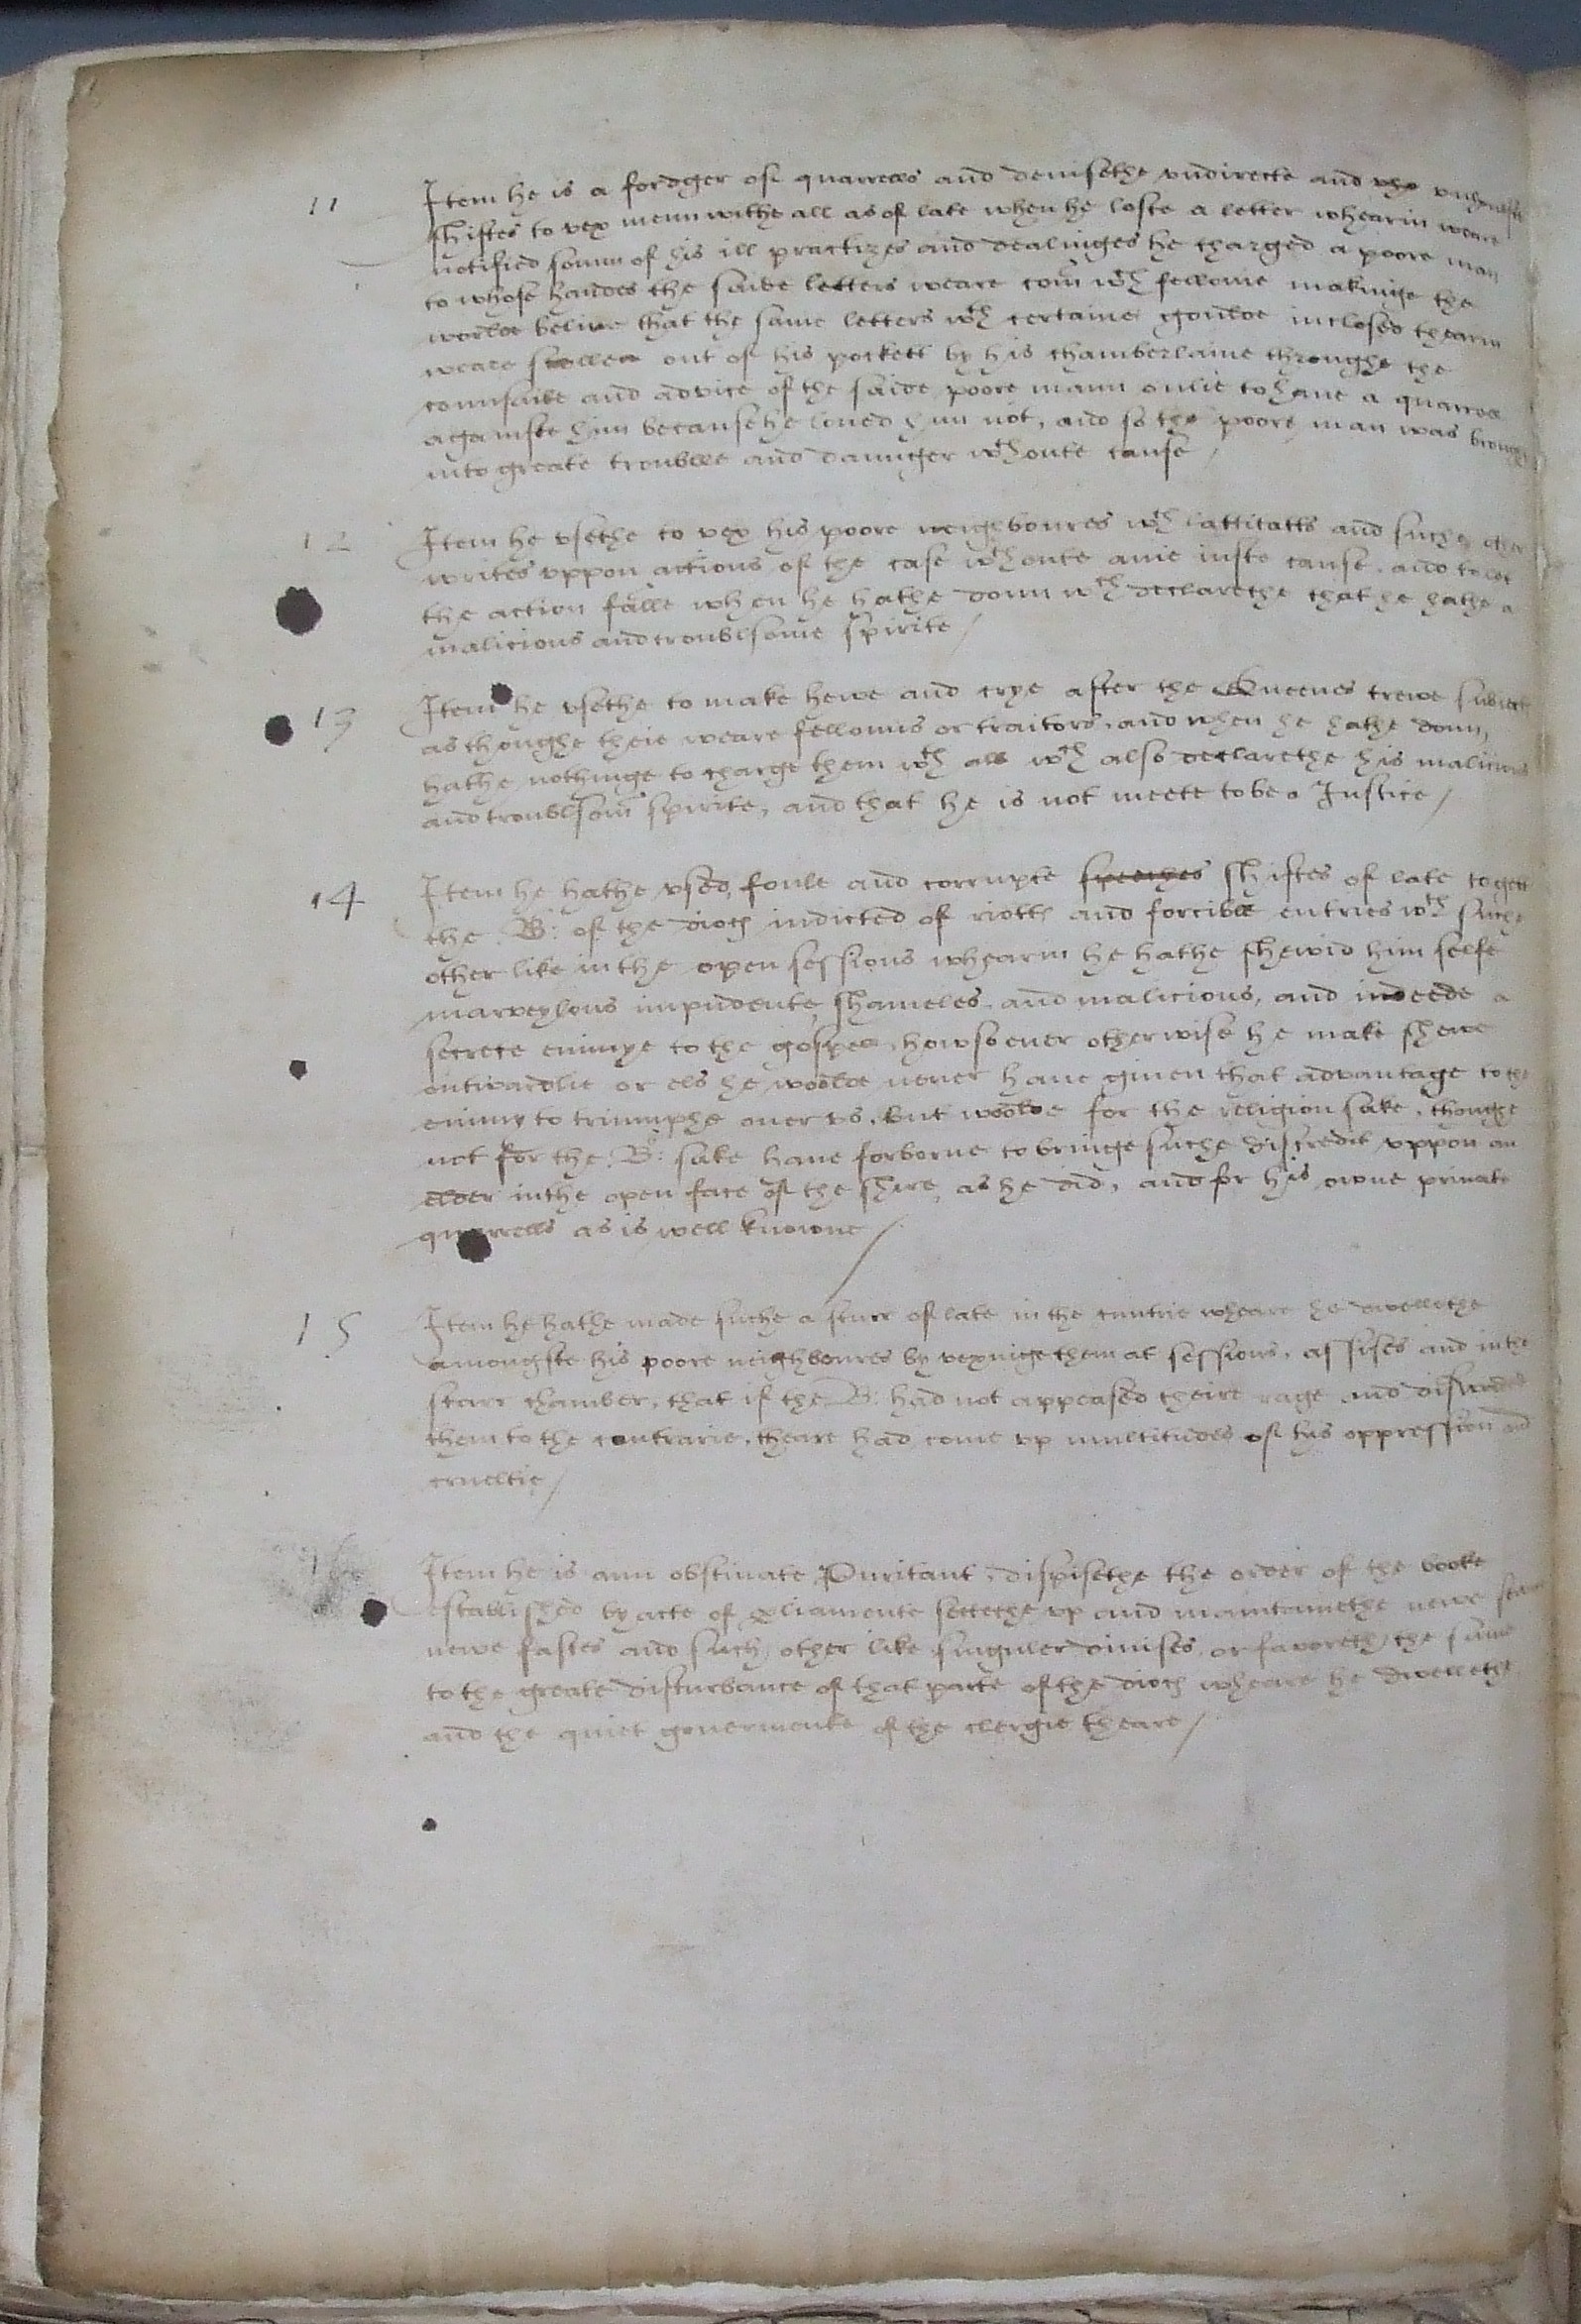 11 Item he is a fordger of quarrells and deuisethe vndirecte and vho vnhoneste
shiftes to vex menn withe all as of late when he loste a letter whearin weare
notified somm of his ill practizes and dealinges he charged a poore man
to whose handes the saide letters weare com wth fellonie makinge the
worlde belive that the same letters wth certaine goulde inclosed thearin
weare stollen out of his pockett by his chamberlaine throughe the
counsaile and advice of the saide poore mann onlie to haue a quarrell
againste him because he loued him not, and so the poore man was brought
into greate troublle and daunger wthoute cause /
12 Item he vsethe to vex his poore neighboures wth lattitatts and suche other
writes vppon actions of the case wthoute anie iuste cause. and to let
the action falle when he hathe donn wch declarethe that he hathe a
malicious and troublsome spirite /
13 Item he vsethe to make hewe and crye after the Queenes trewe subiects
as thoughe theie weare fellonns or traitors. and when he hathe donn,
hathe nothinge to charge them wth all wch also declarethe his malicious
and troublsom spirite, and that he is not meete to be a Iustice /
14 Item he hathe vsed foule and corrupte speaches shiftes of late to gett
the B: of the dioc indicted of riotts and forcible entries wth suche
other like in the open sessions whearin he hathe shewid him selfe
marveylous impudente, shameles and malicious, and indeede a
secrete enimye to the gospell, howsoeuer otherwise he make shewe
outwardlie or els he woolde neuer haue giuen that advantage to the
enimy to triumphe ouer vs. but woolde for the religion sake, thoughe
not for the B: sake haue forborne to bringe suche discredit vppon an
elder in the open face of the shire, as he did, and for his owne private
quarrells as is well knowne /
15 Item he hathe made suche a sturr of late in the cuntrie wheare he dwellethe
amongste his poore neighboures by vexinge them at sessions, assises and in the
starr chamber, that if the B: had not appeased theire rage and disswaded
them to the contrarie, theare had come vp multitudes of his oppression and
crueltie /
Item he is ann obstinate Puritant, dispisethe the order of the booke
established by acte of pliamente settethe vp and mainteinethe newe
newe fastes and such other like singuler diuises or favoreth the same
to the greate disturbance of that parte of the dioc wheare he dwellethe
and the quiet gouermente of the clergie theare /